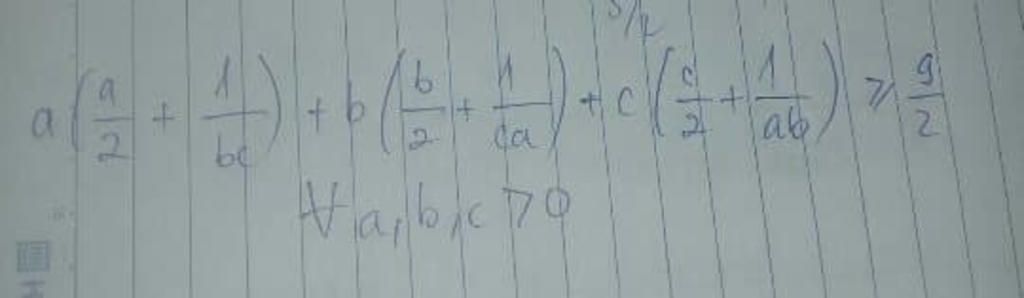 a(a/2 + 1/bc) + b(b/2 + 1/ca) + c(c/2 + 1/ab) ⩾ 9/2
∀ a, b, c > 0